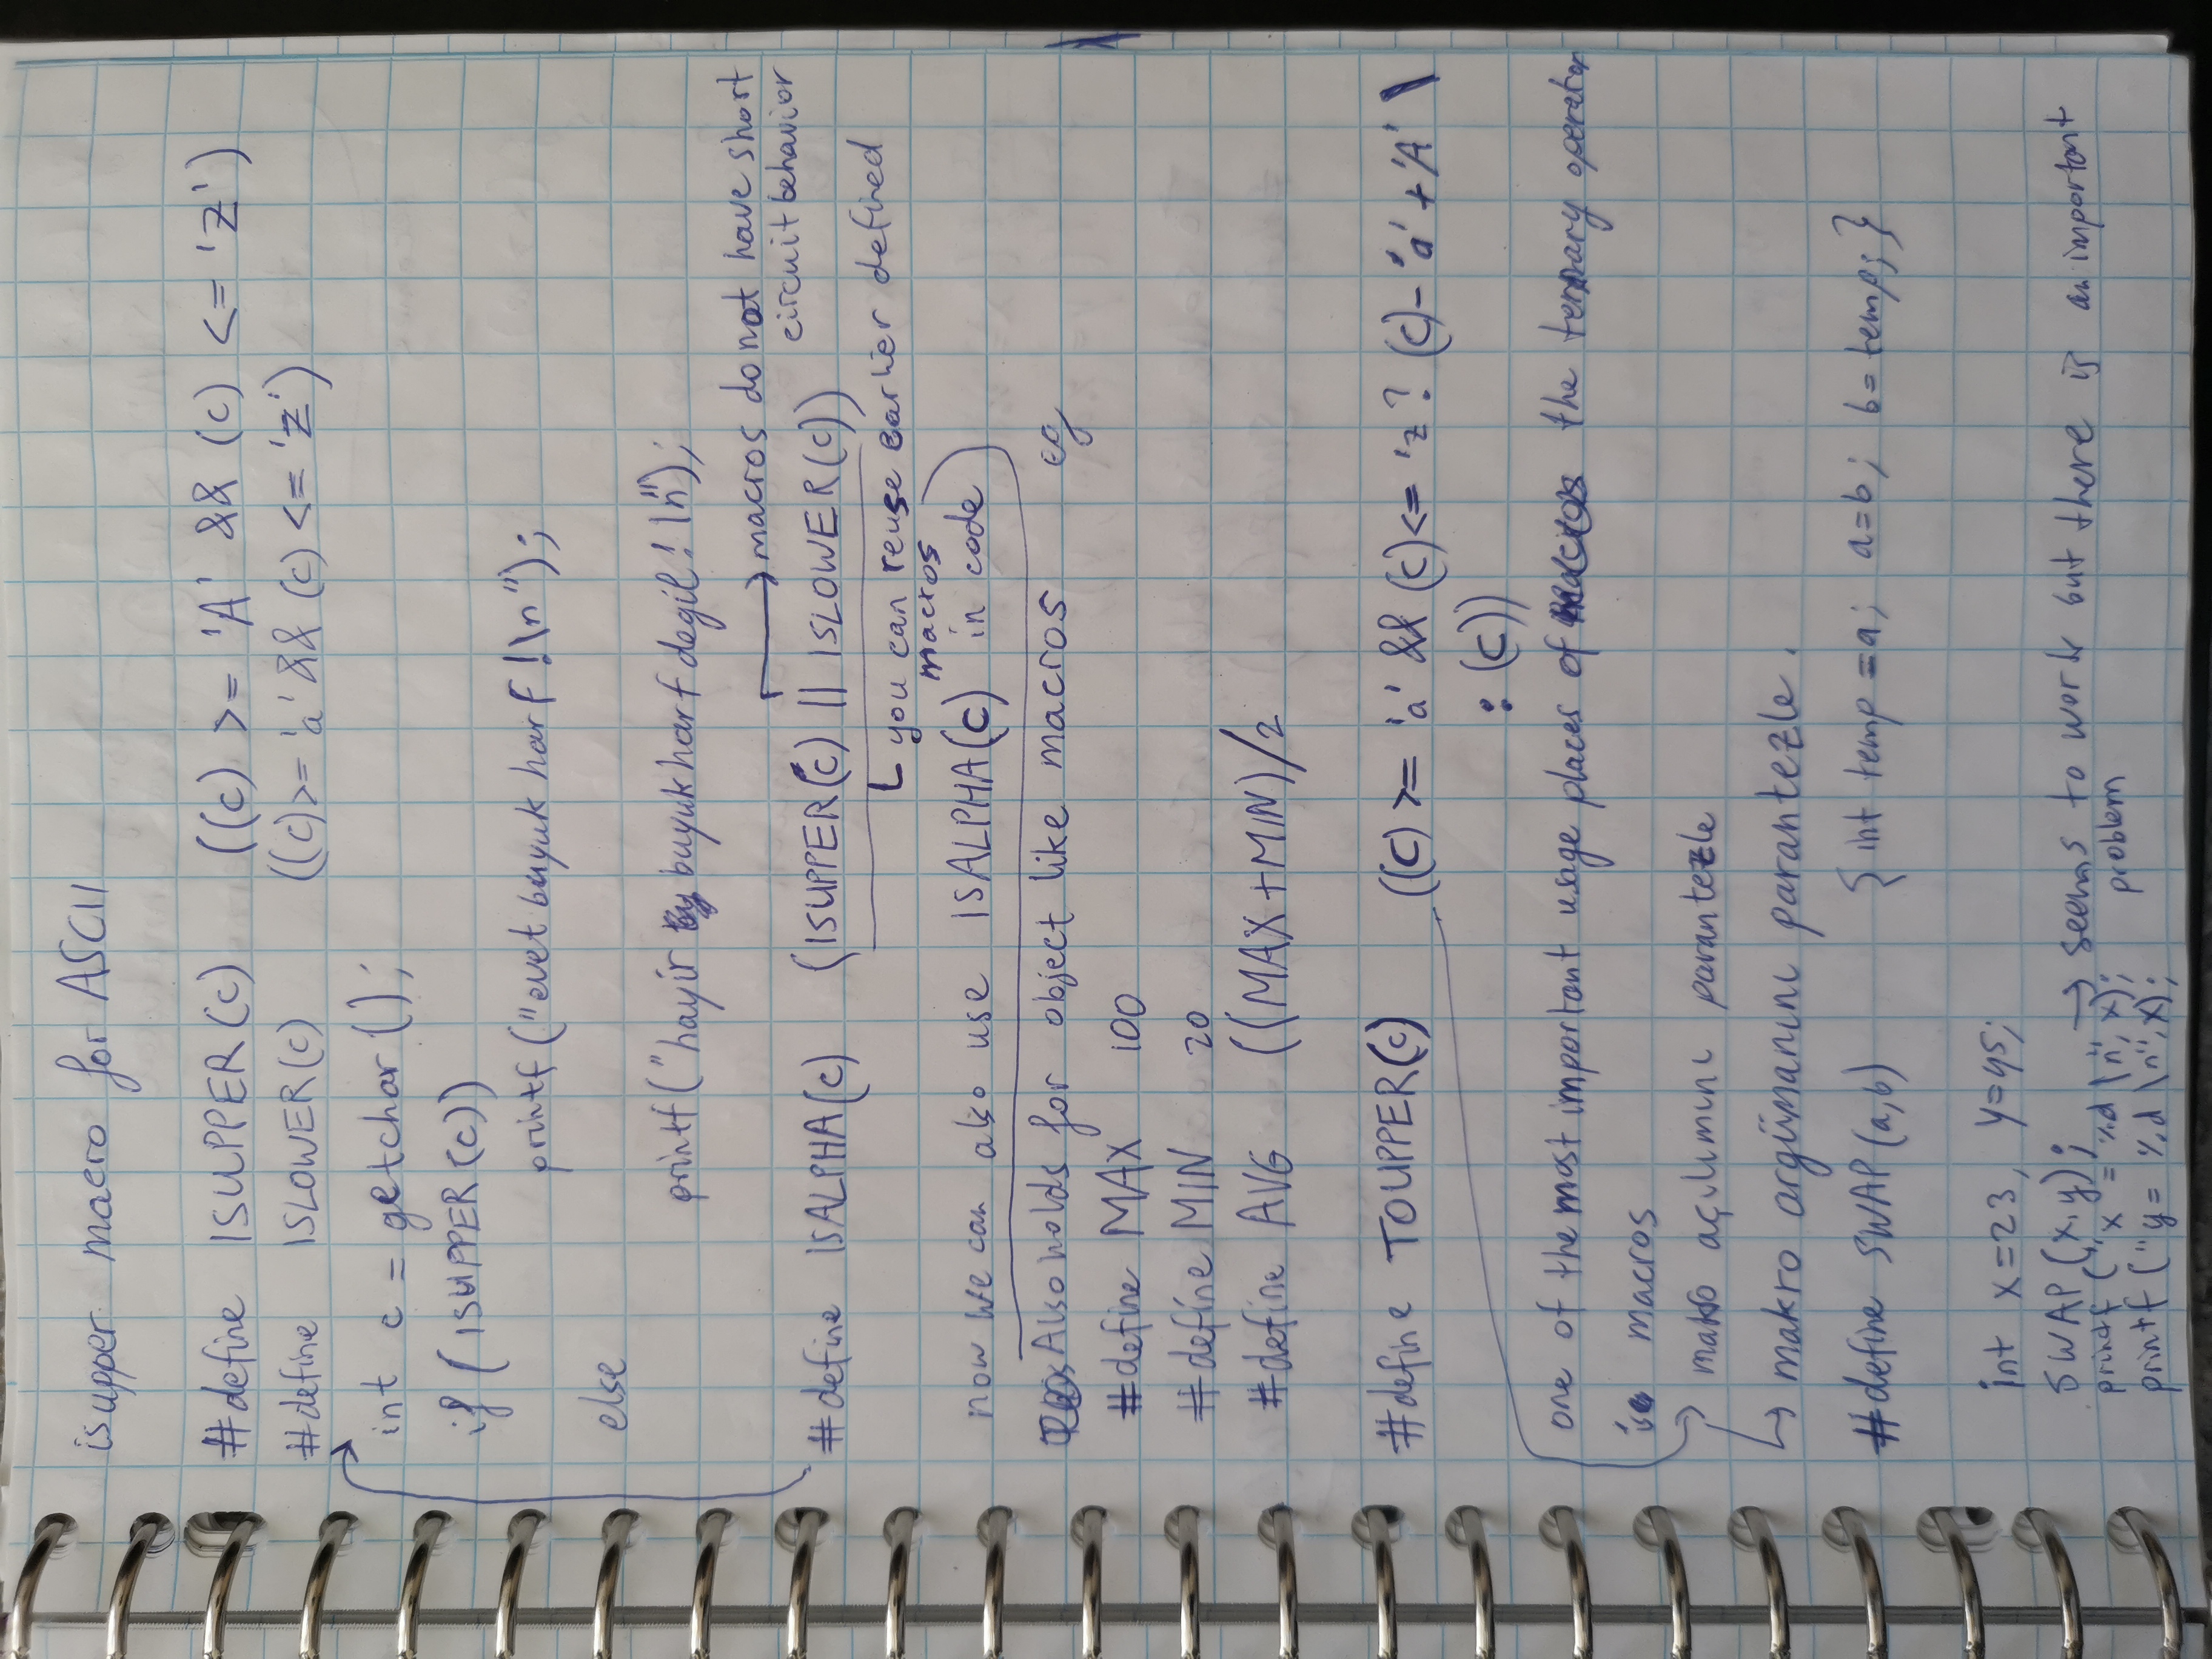 isupper macro for ASCII
#define ISUPPER(c) ((c) >= 'A' && (c) <= 'Z')
#define ISLOWER(c) ((c)>= 'a' && (c) <= 'z')
int c = getchar();
if (ISUPPER(c))
printf("evet buyuk harf!\n");
else
printf("hayir buyuk harf degil! \n");
macros do not have short
circuit behavior
#define ISALPHA(c) (ISUPPER(c) || ISLOWER(c))
you can reuse earlier defined
macros
now we can also use ISALPHA(c) in code
Also holds for object like macros eg
#define MAX 100
#define MIN 20
#define AVG ((MAX+MIN)/2
#define TOUPPER(c) ((c) >= 'a' && (c)<= 'z ? (c)- 'a' + 'A' \
: (c))
one of the most important usage places of the ternary operator
is macros
makro açılımını parantezle
makro argümanını parantezle.
#define SWAP(a,b) { int temp =a; a=b; b=temp; }
int x=23, y=45;
SWAP(x,y); → seems to work but there is an important
problem
printf("x = %d \n", x);
printf("y= %d \n",x);